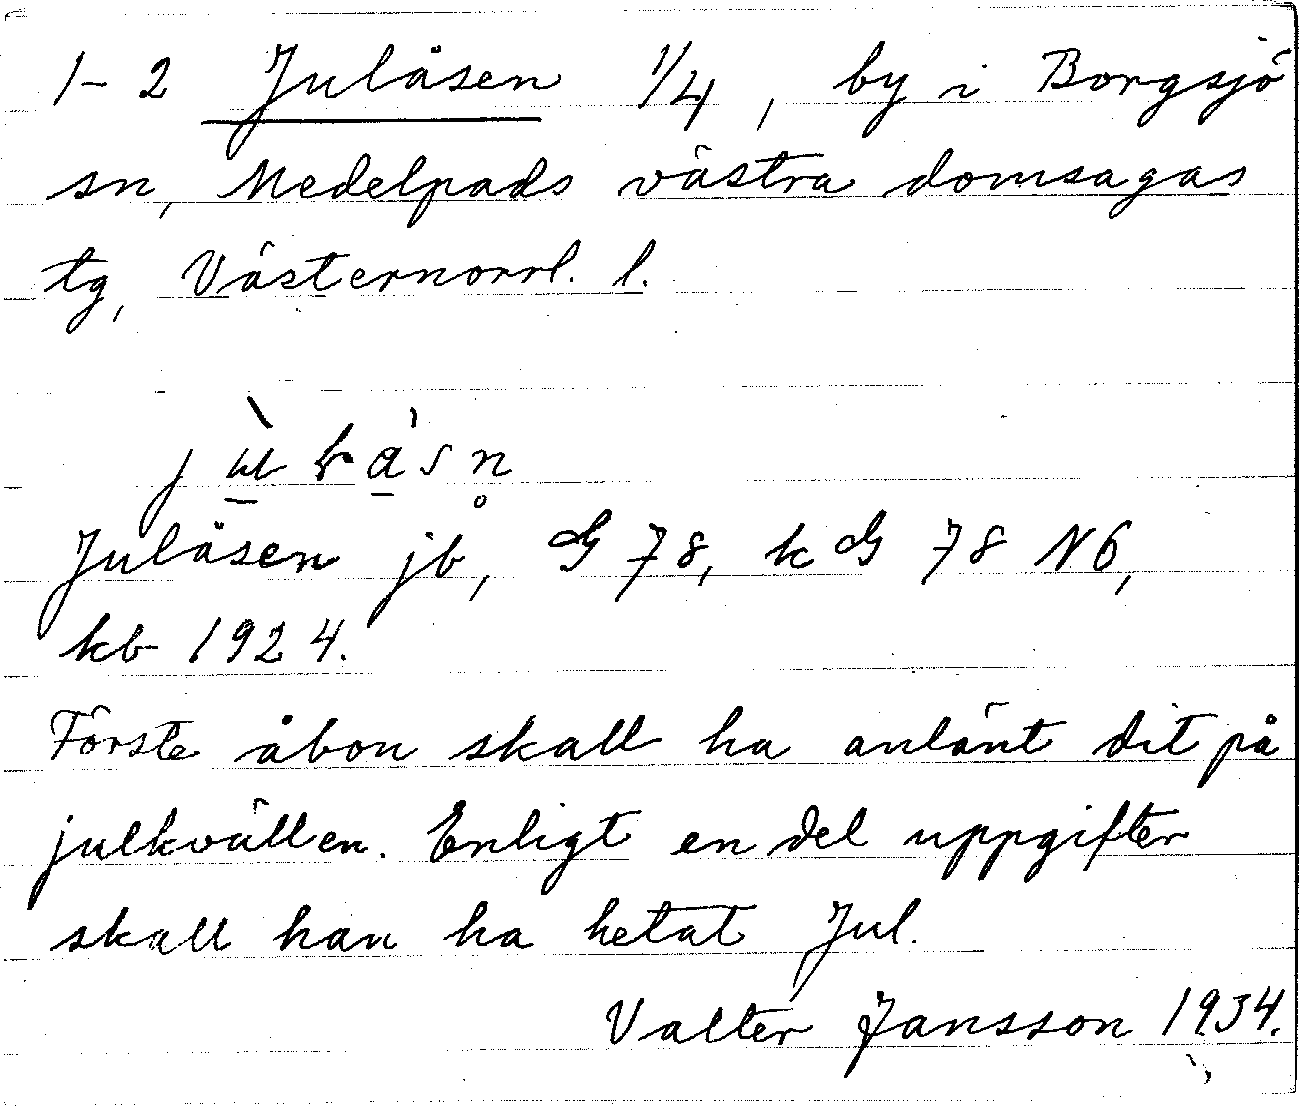 1-2 Julåsen 1/4, by i Borgsjö
sn, Medelpads västra domsagas
tg, Västernorrl. l.
Julåsen jb, G 78, k G 78 N6,
kb 1924.
Förste åbon skall ha anlänt dit på
julkvällen. Enligt en del uppgifter
skall han ha hetat Jul.
Valter Jansson 1934.